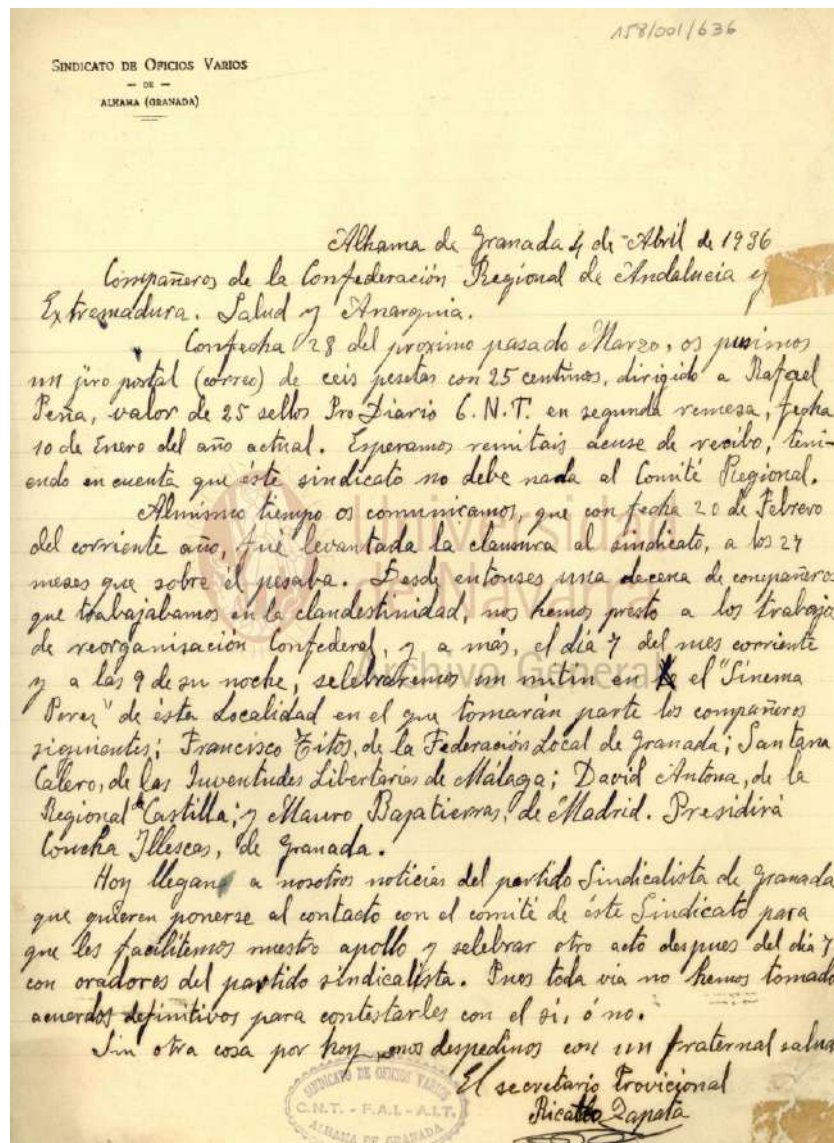 158/001/636
SINDICATO DE OFICIOS VARIOS
— DE —
ALHAMA (GRANADA)
Alhama de Granada 4 de Abril de 1936
Compañeros de la Confederación Regional de Andalucia y
Extremadura. Salud y Anarquia.
Confecha 28 del proximo pasado Marzo, os pusimos
un jiro postal (correo) de ceis pesetas con 25 centimos, dirigido a Rafael
Peña, valor de 25 sellos Pro Diario C.N.T. en segunda remesa, fecha
10 de Enero del año actual. Esperamos remitais acuse de recibo, teni-
endo en cuenta que éste sindicato no debe nada al Comité Regional.
Almismo tiempo os comunicamos, que con fecha 20 de Febrero
del corriente año, fué levantada la clausura al sindicato, a los 27
meses que sobre él pesaba. Desde entonses una decena de compañeros
que trabajabamos en la clandestinidad, nos hemos presto a los trabajos
de reorganisación Confederal, y a más, el día 7 del mes corriente
y a las 9 de su noche, selebraremos un mitin en el "Sinema
Perez" de ésta Localidad en el que tomarán parte los compañeros
siguientes; Francisco Titos, de la Federación Local de Granada; Santana
Calero, de las Juventudes Libertarias de Málaga; David Antona, de la
Regional de Castilla; y Mauro Bajatierras, de Madrid. Presidirá
Concha Illescas, de Granada.
Hoy llegan a nosotros noticias del partido Sindicalista de Granada
que quieren ponerse al contacto con el comité de éste Sindicato para
que les facilitemos nuestro apollo y selebrar otro acto despues del día 7
con oradores del partido sindicalista. Pues toda via no hemos tomado
acuerdos definitivos para contestarles con el si, ó no.
Sin otra cosa por hoy, nos despedinos con un fraternal salud
El secretario Provicional
Ricardo Zapata
SINDICATO DE OFICIOS VARIOS
C.N.T. - F.A.I. - A.I.T.
ALHAMA DE GRANADA
Universidad
de Navarra
Archivo General